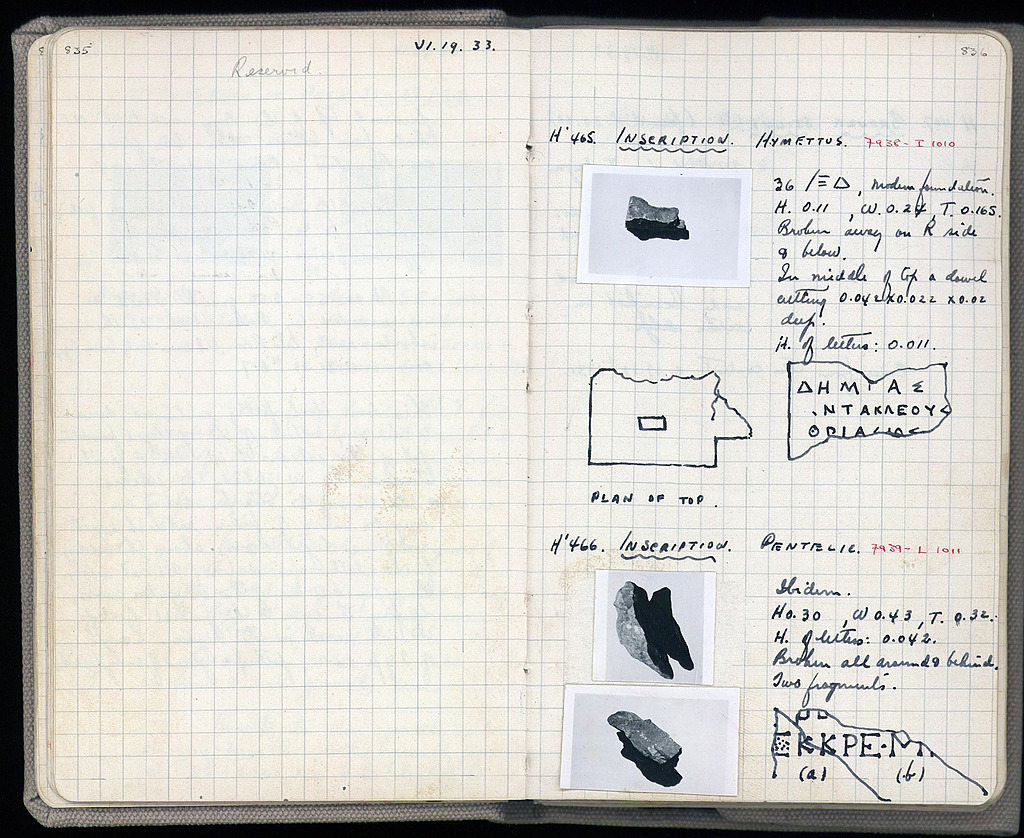 835
VI. 19. 33.
Reserved.
836
H' 465. INSCRIPTION. HYMETTUS. 7938- I 1010
36 /Ξ Δ, modern foundation.
H. 0.11 , W. 0.24, T. 0.165.
Broken away on R side
& below.
In middle of top a dowel
cutting 0.042 x 0.022 x 0.02
deep.
H. of letters: 0.011.
ΔΗΜΓΑΣ
.ΝΤΑΚΛΕΟΥΣ
ΘΡΙΑΣΙΟΣ
PLAN OF TOP.
H' 466. INSCRIPTION. PENTELIC. 7939- I 1011
Ibidem.
H 0.30 , W 0.43 , T. 0.32.
H. of letters: 0.042.
Broken all around & behind.
Two fragments.
(a) (b)